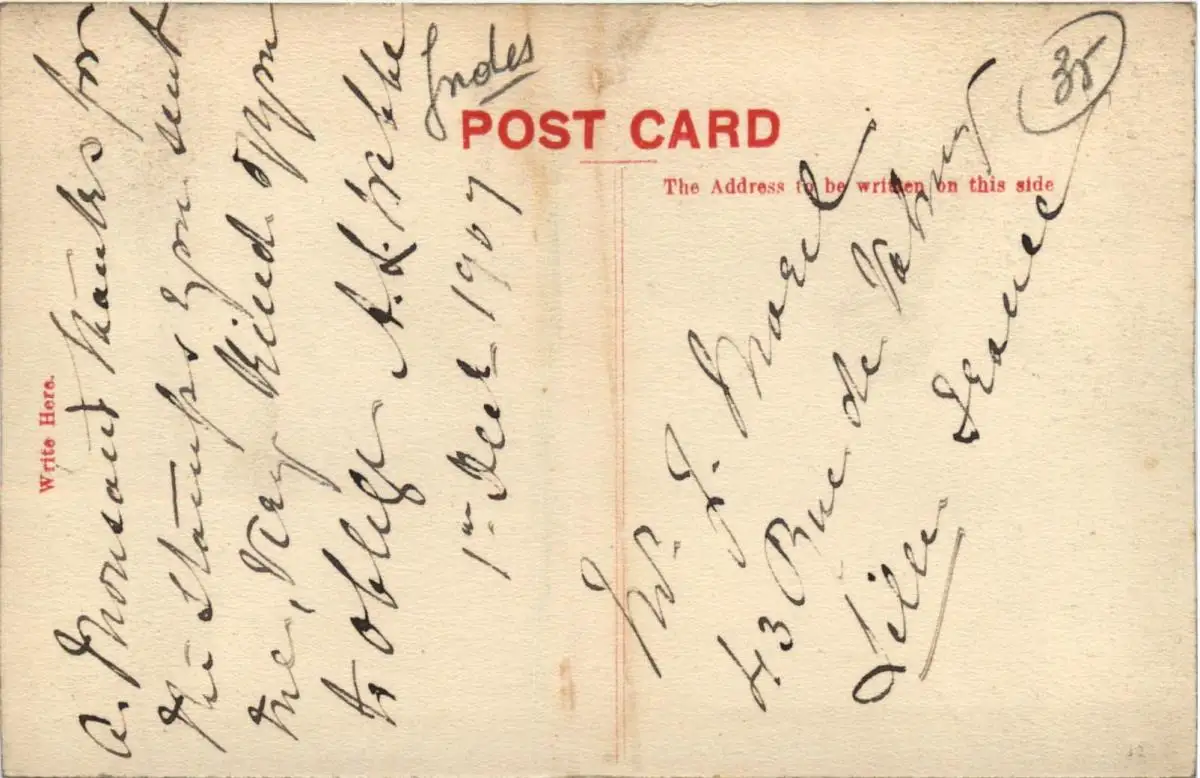 Indes
35
POST CARD
The Address to be written on this side
Write Here.
A. Thousand thanks for
the Stamps you sent
me, Very Kind of you
to oblige A. L.
1st Dec 1907
Mr. J. Marel
43 Rue de
Lille
France